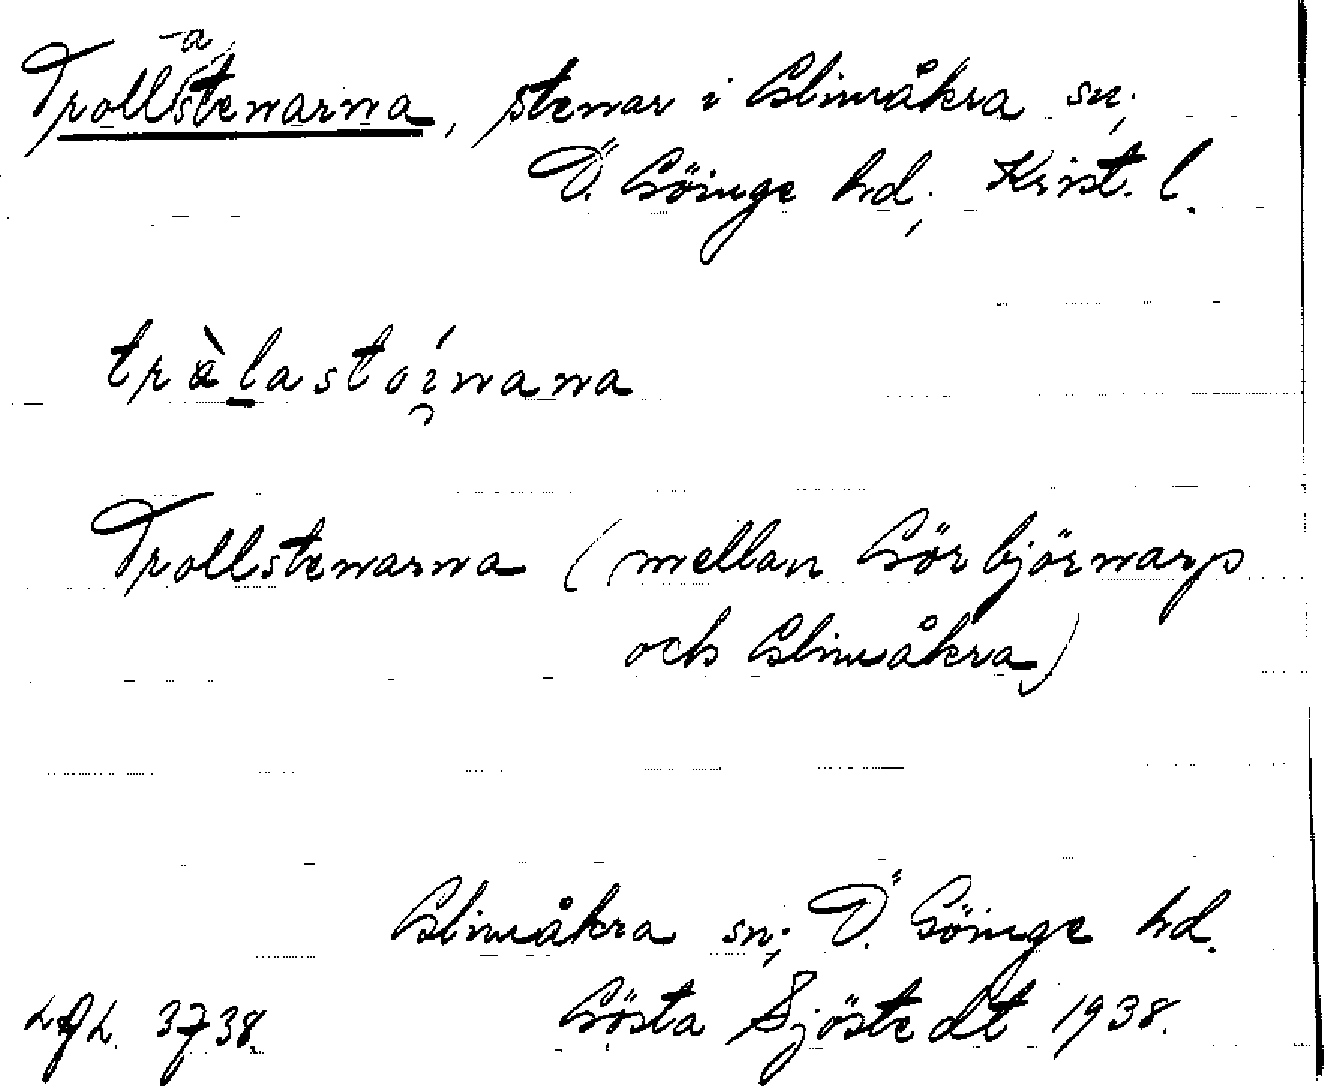 -a
Trollstenarna, stenar i Glimåkra sn;
Ö. Göinge hd; Krist. l.
tràlastoi̯nana
Trollstenarna (mellan Görbjörnarp
och Glimåkra)
Glimåkra sn; Ö. Göinge hd.
3738. Gösta Sjöstedt 1938.